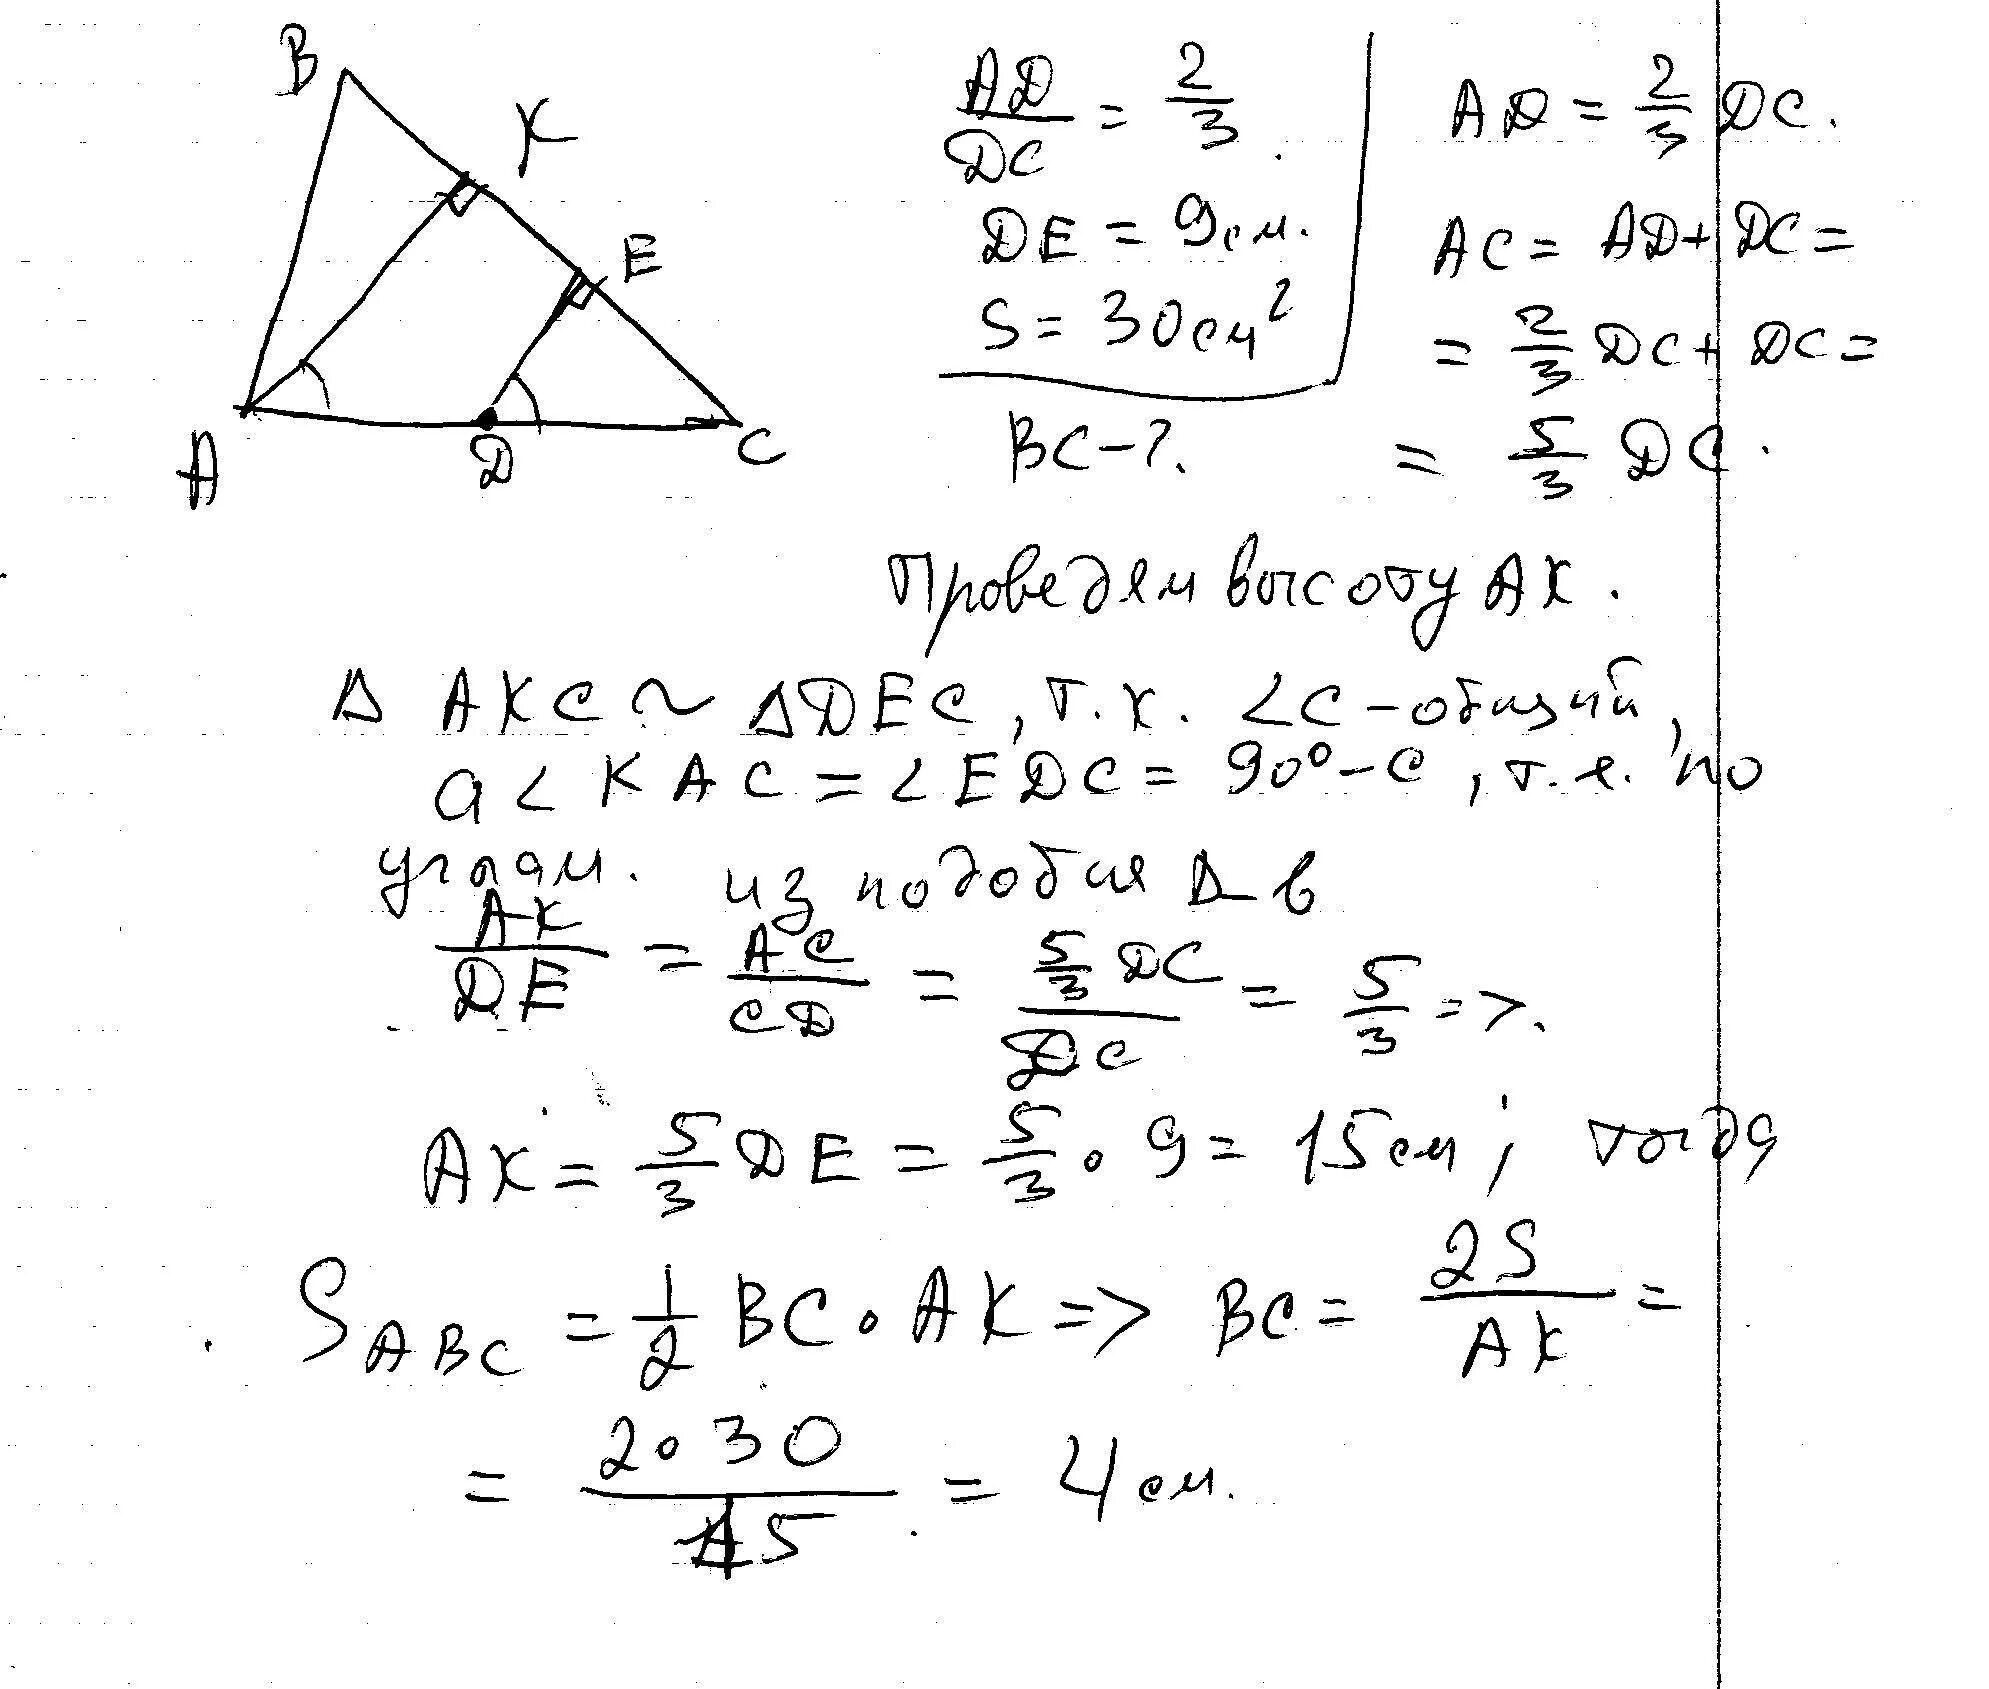 B
K
E
A
D
C
AD/DC = 2/3.
DE = 9см.
S = 30см²
BC - ?.
AD = 2/3 DC.
AC = AD + DC =
= 2/3 DC + DC =
= 5/3 DC.
Проведям высоту AK.
Δ AKC ~ ΔDEC, т.к. ∠C - общий,
а ∠KAC = ∠EDC = 90° - C, т.е. по
углам. из подобия Δ-в
AK/DE = AC/CD = (5/3 DC)/DC = 5/3 =>.
AK = 5/3 DE = 5/3 · 9 = 15см; тогда
S ABC = 1/2 BC · AK => BC = 2S/AK =
= 2·30/15 = 4см.